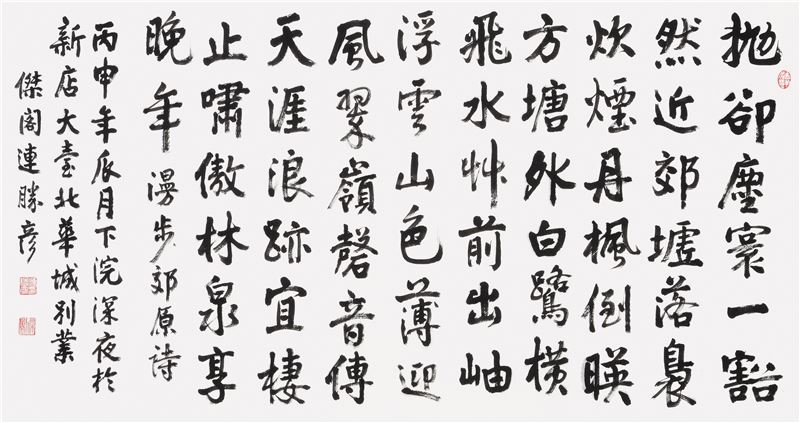 拋卻塵寰一豁
然近郊墟落裊
炊煙丹楓倒暎
方塘外白鷺橫
飛水艸前出岫
浮雲山色薄迎
風翠嶺磬音傳
天涯浪跡宜棲
止嘯傲林泉享
晚年 漫步郊原詩
丙申年瓜月下浣深夜於
新店大臺北華城別業
傑閣連勝彥